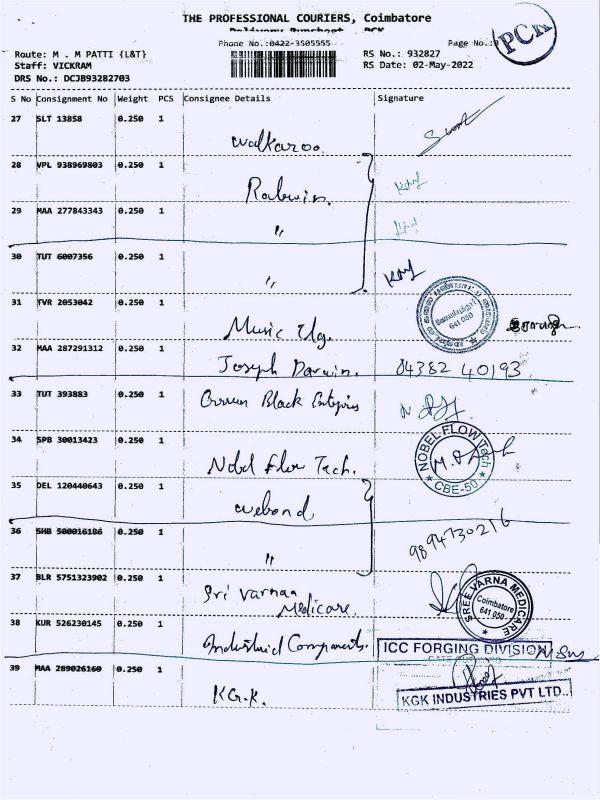 THE PROFESSIONAL COURIERS, Coimbatore
PCK
Phone No.:0422-3505555
Page No.:3
Route: M . M PATTI {L&T}
RS No.: 932827
Staff: VICKRAM
RS Date: 02-May-2022
DRS No.: DCJB93282703
S No Consignment No Weight PCS Consignee Details Signature
27 SLT 13858 0.250 1
Walkaroo
28 VPL 938969803 0.250 1
Rabwin.
29 MAA 277843343 0.250 1
"
30 TUT 6007356 0.250 1
"
31 TVR 2053042 0.250 1
641 050
Music
32 MAA 287291312 0.250 1
Joseph Darwin. 04382 40193
33 TUT 393883 0.250 1
Black
34 SPB 30013423 0.250 1
NOBEL FLOW Tech
CBE-50
Nobel Flow Tech.
35 DEL 120440643 0.250 1
Webond
36 SHB 500016186 0.250 1
9894730216
"
37 BLR 5751323902 0.250 1
Sri Varnaa
Medicare.
SREE VARNA MEDICARE
Coimbatore
641 050.
38 KUR 526230145 0.250 1
Industrial Components.
ICC FORGING DIVISION
39 MAA 289026160 0.250 1
KGK INDUSTRIES PVT LTD..
KG.K.